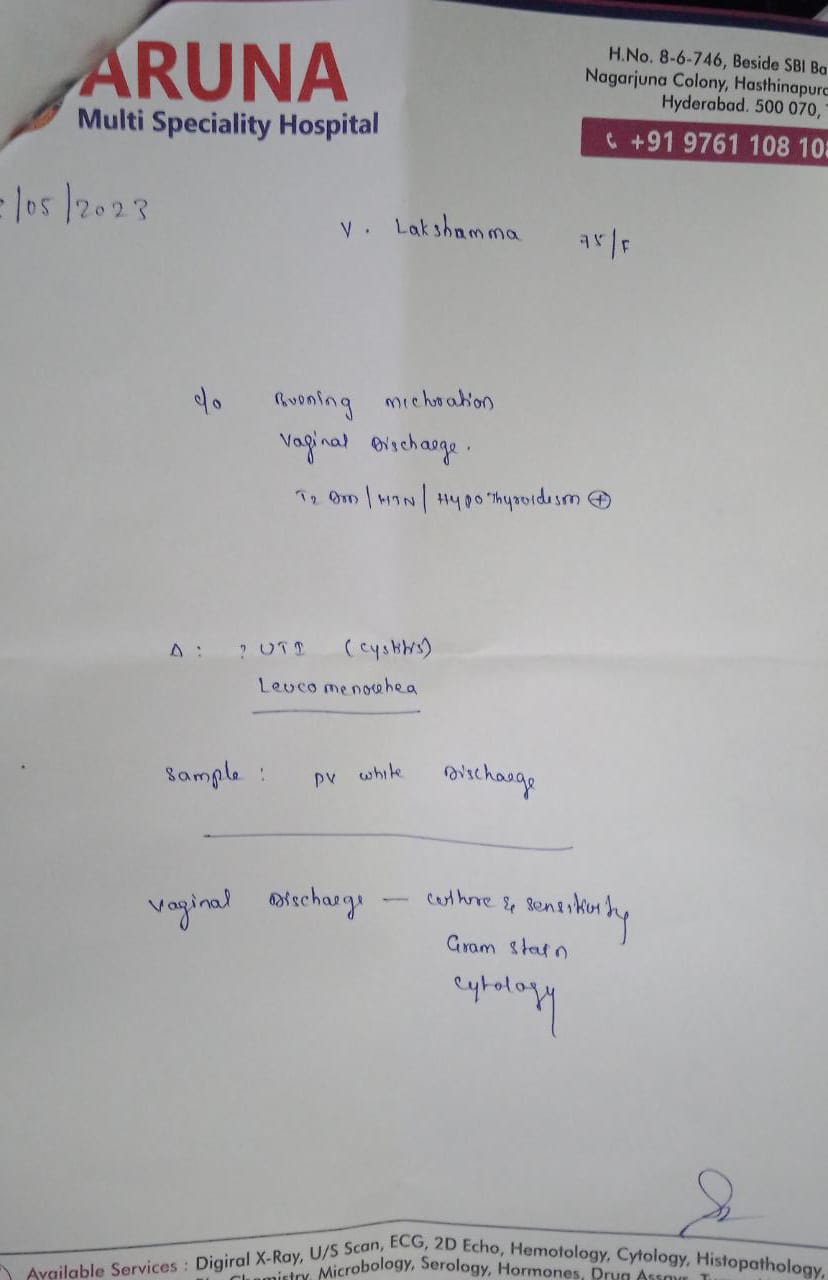 ARUNA
Multi Speciality Hospital
H.No. 8-6-746, Beside SBI Ba
Nagarjuna Colony, Hasthinapur
Hyderabad. 500 070,
+91 9761 108 10
/05/2023
V. Lakshamma 75/F
c/o Burning micturation
Vaginal Discharge.
T2 Dm/HTN/Hypothyroidism ⊕
Δ: ? UTI (cystitis)
Leucomenorrhea
Sample: PV white Discharge
Vaginal Discharge — culture & sensitivity
Gram stain
cytology
Available Services : Digiral X-Ray, U/S Scan, ECG, 2D Echo, Hemotology, Cytology, Histopathology,
Microbology, Serology, Hormones, Drug